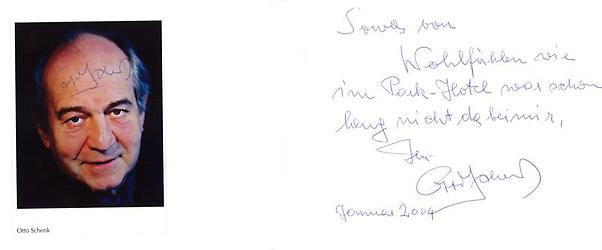 Otto Schenk
Sowas von
Wohlfühlen wie
im Park-Hotel war schon
lang nicht da bei mir,
Ihr
Otto Schenk
Januar 2004